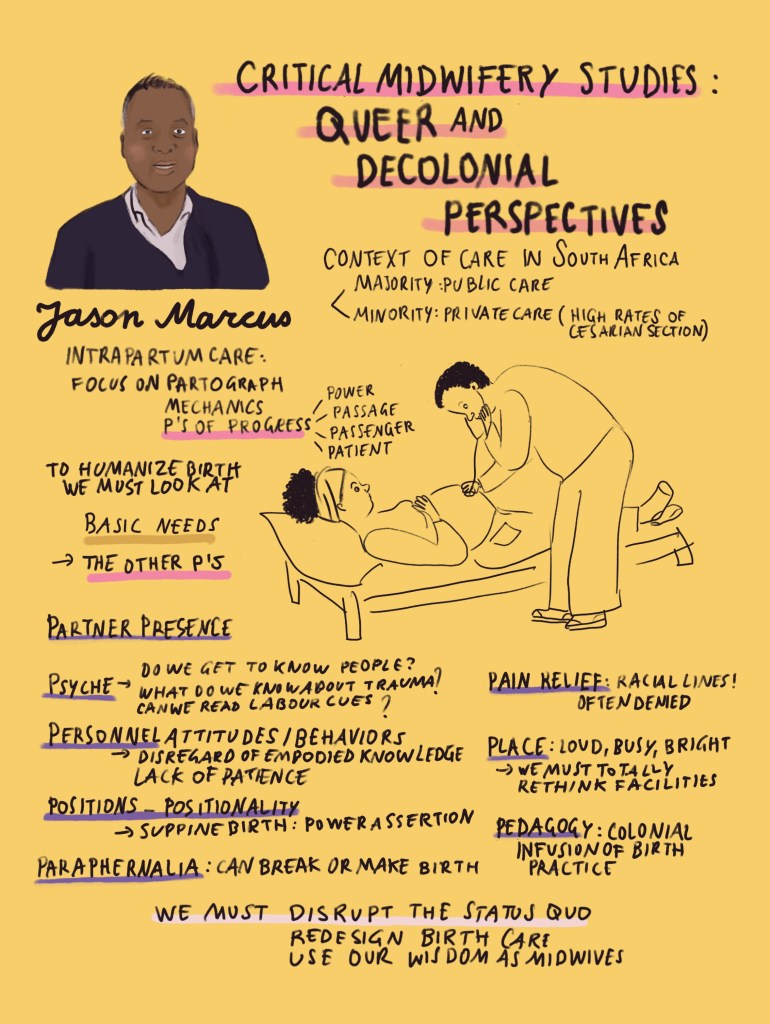 CRITICAL MIDWIFERY STUDIES:
QUEER AND
DECOLONIAL
PERSPECTIVES
CONTEXT OF CARE IN SOUTH AFRICA
MAJORITY: PUBLIC CARE
MINORITY: PRIVATE CARE (HIGH RATES OF
CESARIAN SECTION)
Jason Marcus
INTRAPARTUM CARE:
FOCUS ON PARTOGRAPH
MECHANICS
P'S OF PROGRESS
POWER
PASSAGE
PASSENGER
PATIENT
TO HUMANIZE BIRTH
WE MUST LOOK AT
BASIC NEEDS
→ THE OTHER P'S
PARTNER PRESENCE
PSYCHE → DO WE GET TO KNOW PEOPLE?
WHAT DO WE KNOW ABOUT TRAUMA?
CAN WE READ LABOUR CUES?
PERSONNEL ATTITUDES/BEHAVIORS
→ DISREGARD OF EMPODIED KNOWLEDGE
LACK OF PATIENCE
POSITIONS - POSITIONALITY
→ SUPPINE BIRTH: POWER ASSERTION
PARAPHERNALIA: CAN BREAK OR MAKE BIRTH
PAIN RELIEF: RACIAL LINES!
OFTEN DENIED
PLACE: LOUD, BUSY, BRIGHT
→ WE MUST TOTALLY
RETHINK FACILITIES
PEDAGOGY: COLONIAL
INFUSION OF BIRTH
PRACTICE
WE MUST DISRUPT THE STATUS QUO
REDESIGN BIRTH CARE
USE OUR WISDOM AS MIDWIVES